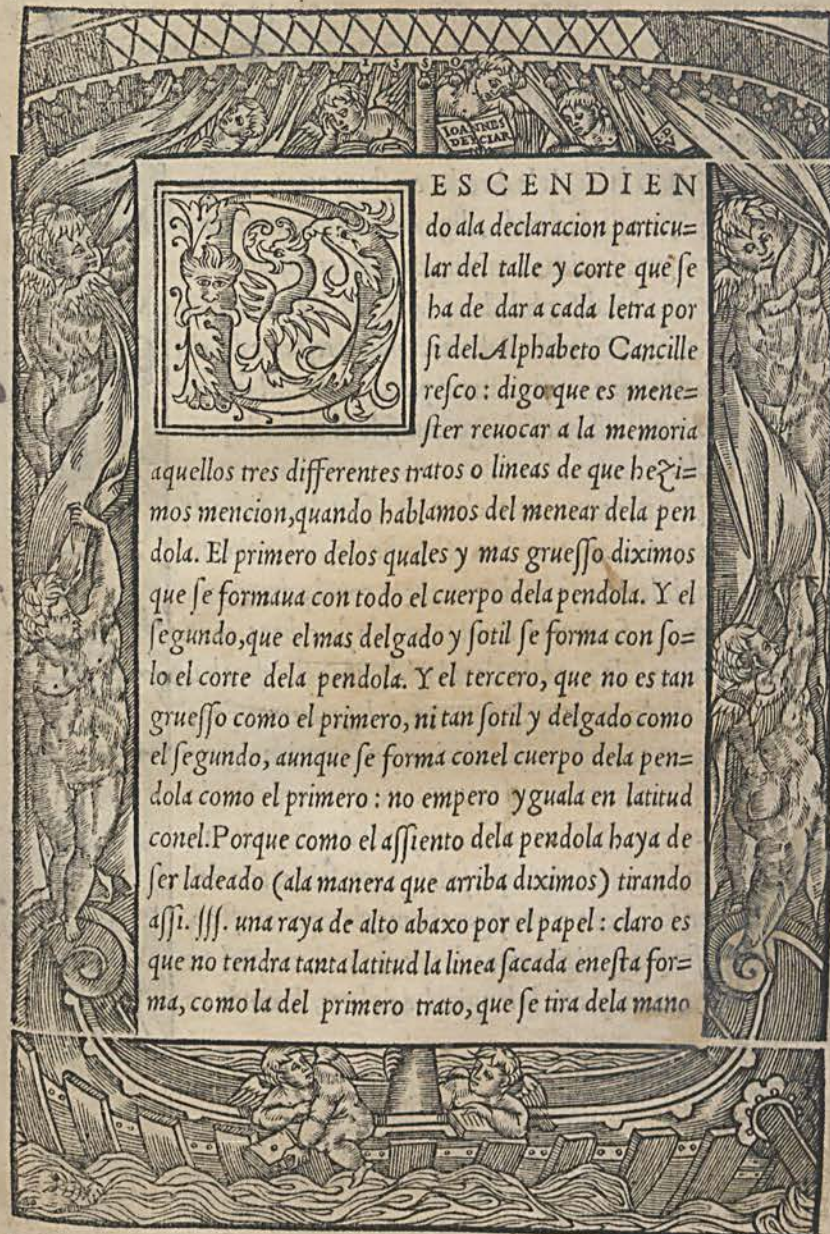 1550
IOANNES
DEYCIAR
DESCENDIEN
do ala declaracion particu=
lar del talle y corte que ſe
ha de dar a cada letra por
ſi del Alphabeto Cancille
reſco : digo que es mene=
ſter reuocar a la memoria
aquellos tres differentes tratos o lineas de que hezi=
mos mencion,quando hablamos del menear dela pen
dola. El primero delos quales y mas grueſſo diximos
que ſe formaua con todo el cuerpo dela pendola. Y el
ſegundo,que el mas delgado y ſotil ſe forma con ſo=
lo el corte dela pendola. Y el tercero, que no es tan
grueſſo como el primero, ni tan ſotil y delgado como
el ſegundo, aunque ſe forma conel cuerpo dela pen=
dola como el primero : no empero yguala en latitud
conel.Porque como el aſſiento dela pendola haya de
ſer ladeado (ala manera que arriba diximos) tirando
aſſi. ſſſ. una raya de alto abaxo por el papel : claro es
que no tendra tanta latitud la linea ſacada eneſta for=
ma, como la del primero trato, que ſe tira dela mano